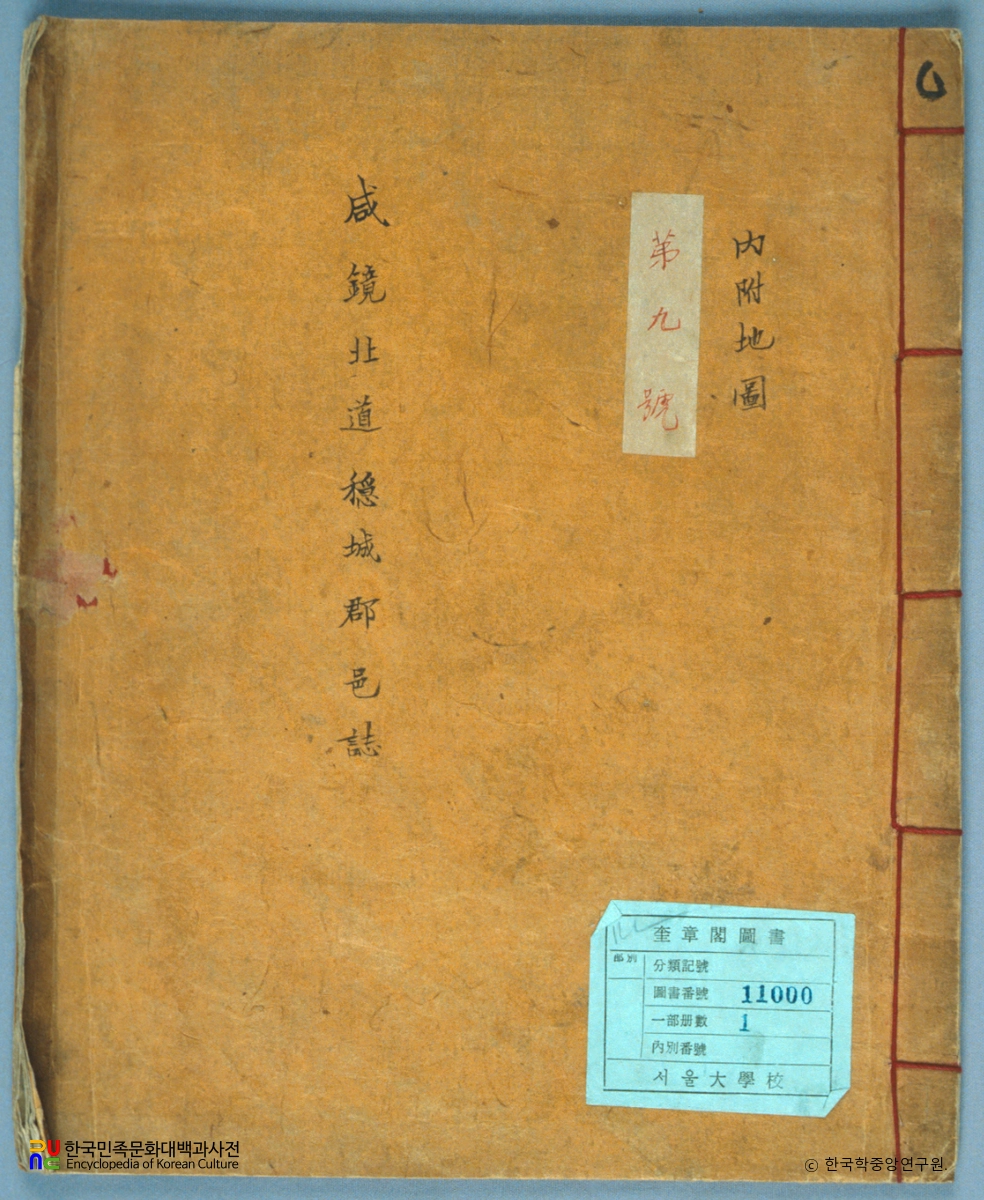 內附地圖
第九號
咸鏡北道穩城郡邑誌
奎章閣圖書
部別
分類記號
圖書番號 11000
一部册數 1
內別番號
서울大學校
한국민족문화대백과사전
Encyclopedia of Korean Culture
© 한국학중앙연구원.